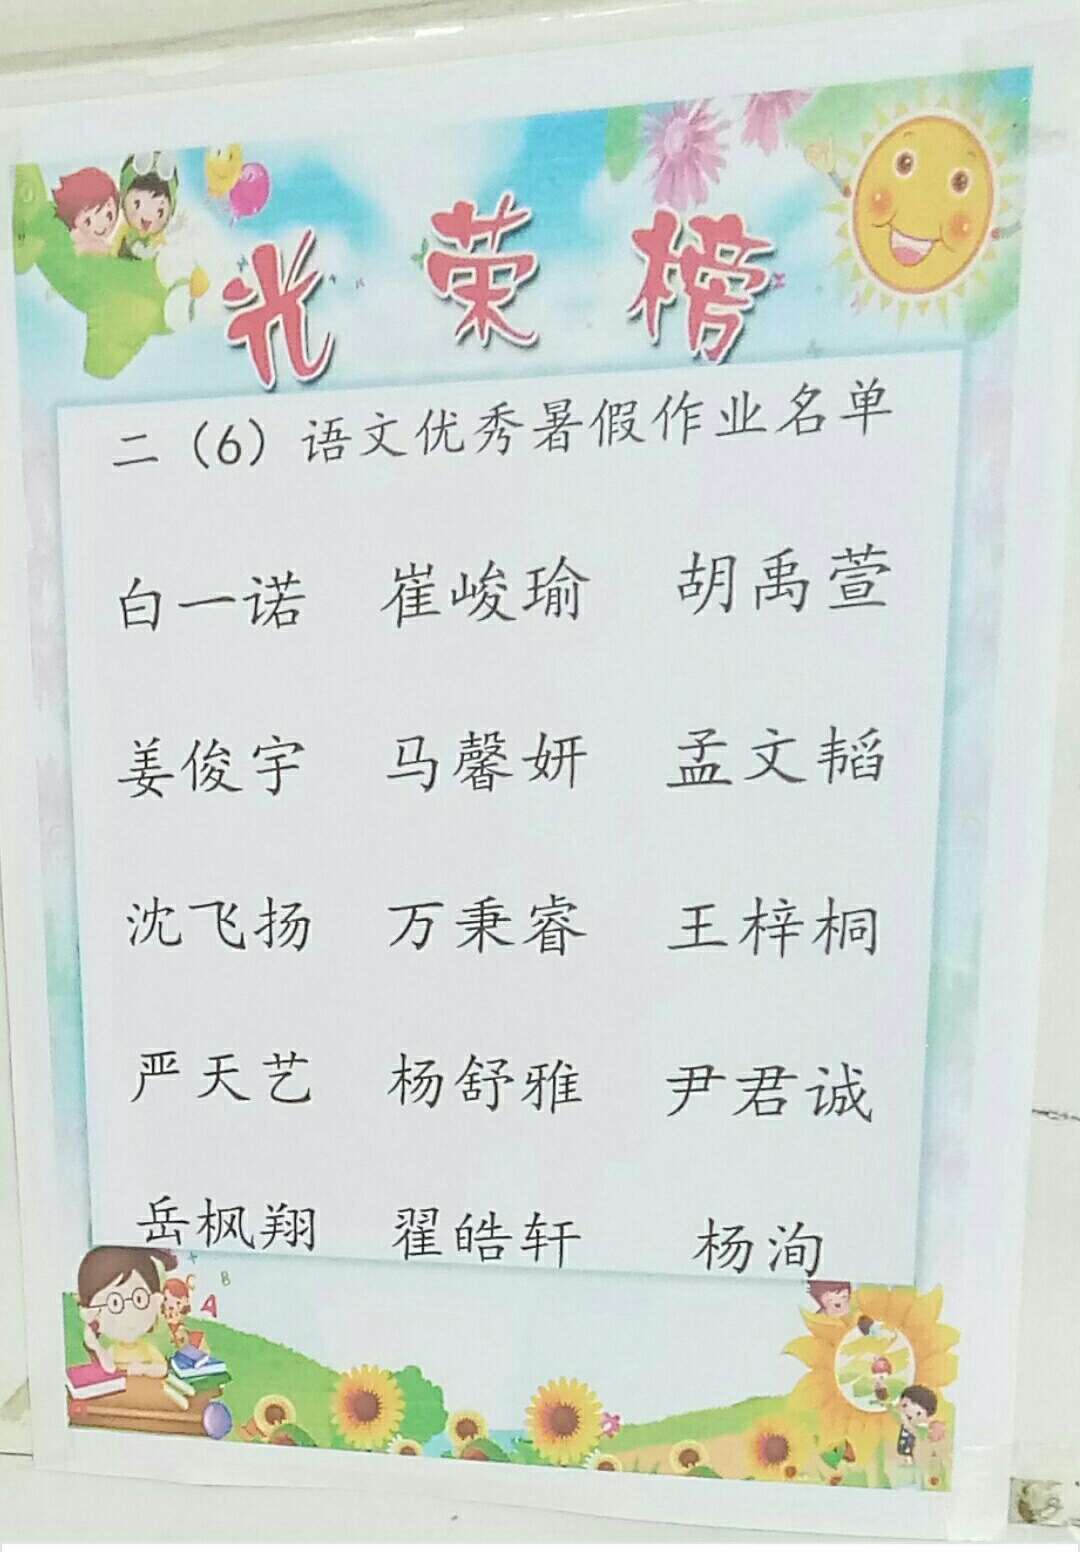 光荣榜
二（6）语文优秀暑假作业名单
白一诺 崔峻瑜 胡禹萱
姜俊宇 马馨妍 孟文韬
沈飞扬 万秉睿 王梓桐
严天艺 杨舒雅 尹君诚
岳枫翔 翟皓轩 杨洵